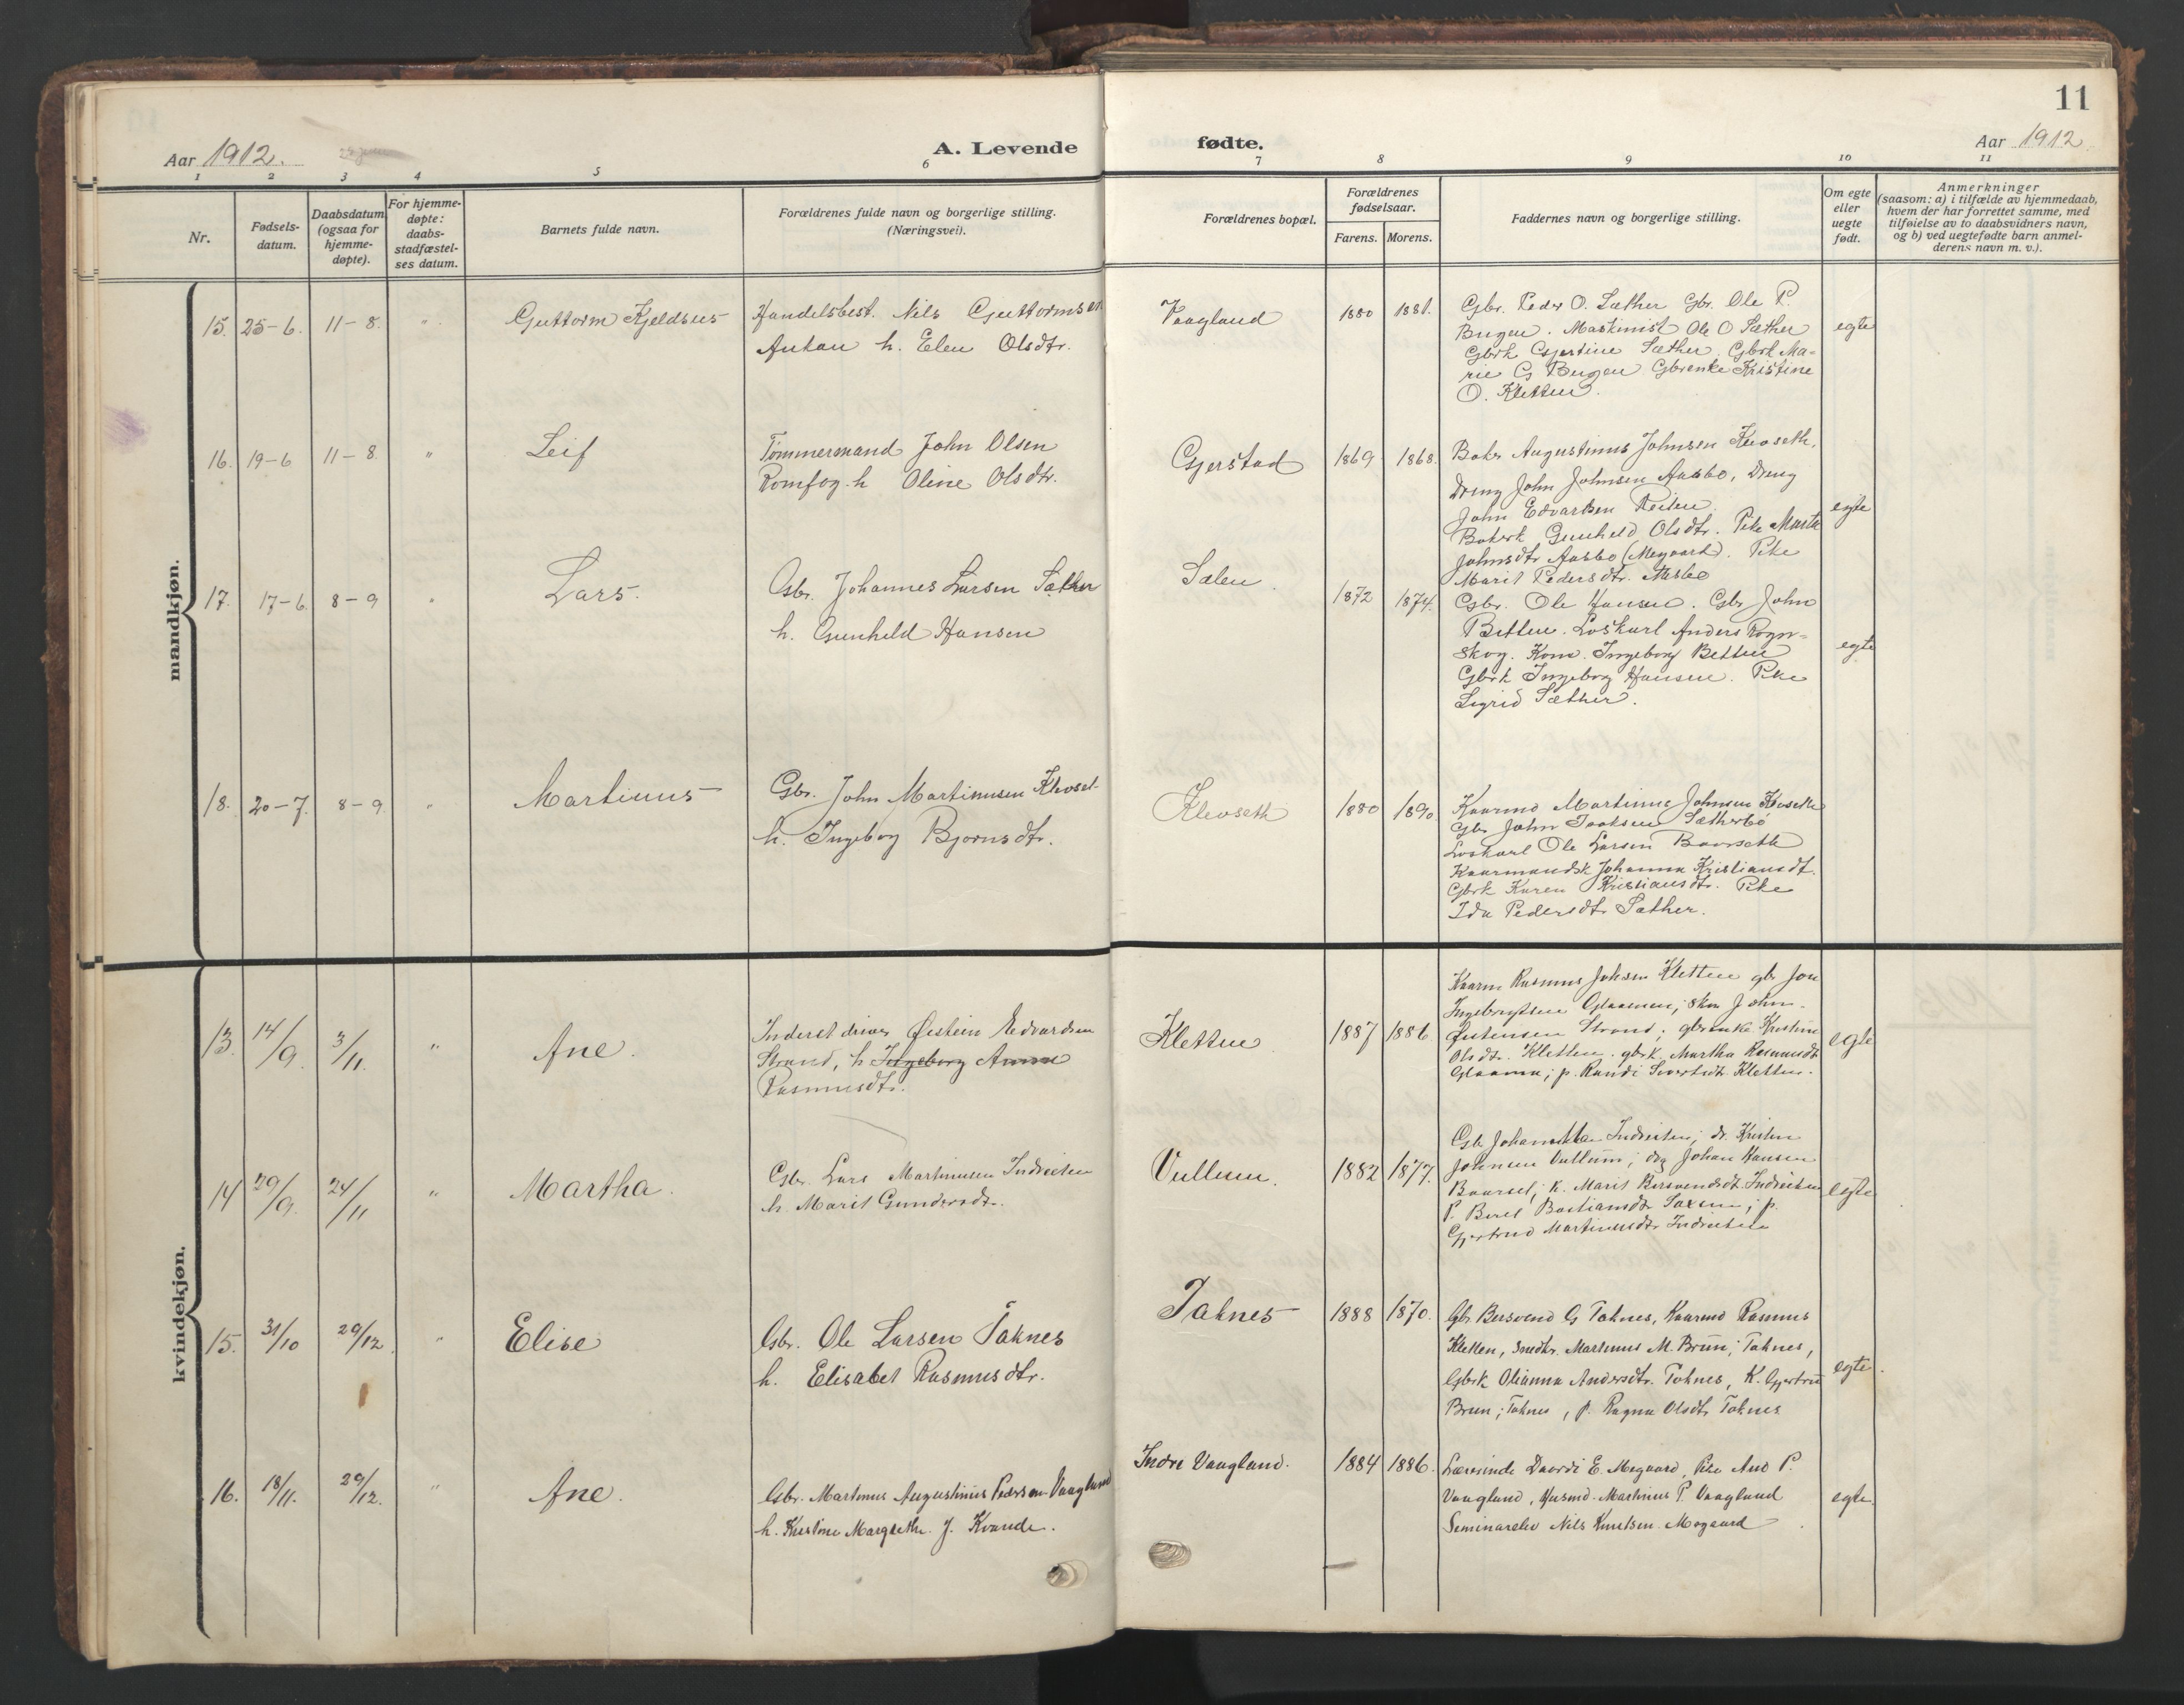 11
Aar 1912.
A. Levende fødte.
Aar 1912.
1 2 3 4 5 6 7 8 9 10 11
Nr.
Fødsels-
datum.
Daabsdatum
(ogsaa for
hjemme-
døpte).
For hjemme-
døpte:
daabs-
stadfæstel-
ses datum.
Barnets fulde navn.
Forældrenes fulde navn og borgerlige stilling.
(Næringsvei).
Forældrenes bopæl.
Forældrenes
fødselsaar.
Farens. Morens.
Faddernes navn og borgerlige stilling.
Om egte
eller
uegte
født.
Anmerkninger
(saasom: a) i tilfælde av hjemmedaab,
hvem der har forrettet samme, med
tilføielse av to daabsvidners navn,
og b) ved uegtefødte barn anmel-
derens navn m. v.).
mandkjøn.
15. 25-6. 11-8. "
Guttorm Kjeldsnes
Handelsbest. Nils Guttormsen
h. Elen Olsdtr.
Vaagland
1880 1881.
Gbr. Peder O. Sæther Gbr. Ole P.
Bugen. Maskinist Ole O Sæther
Gbrk Gjertine Sæther. Gbrk Ma-
rie G Bugen Gbrenke Kristine
O. Kletten.
egte
16. 19-6 11-8. "
Leif
Tømmermand John Olsen
Romfog. h Oline Olsdtr.
Gjerstad
1869 1868.
Augustinus Johnsen Kleoseth,
Dreng John Johnsen Aasbø, Dreng
John Edvardsen Reiten.
Gunhild Olsdtr. Pike Marte
Johnsdtr Aasbø (Megaard). Pike
Marit Pedersdtr. Aasbø
egte
17. 17-6. 8-9 "
Lars.
Gbr. Johannes Larsen Sæther
h. Gunhild Hansen
Sælen.
1872 1874.
Gbr. Ole Hansen. Gbr John
Betten. Løskarl Anders Rogn-
skog. Kone Ingeborg Betten
Gbrk Ingeborg Hansen. Pike
Sigrid Sæther.
egte
18. 20-7. 8-9. "
Martinus
Gbr. John Martinusen Kleoset
h. Ingebog Bjørnsdtr.
Kleoseth
1880 1890.
Kaarmd Martinus Johnsen Kleoseth
Gbr John Isaksen Sætherbø
Løskarl Ole Larsen Baarseth
Kaarmandsk Johanna Kristiansdt.
Gbrk Karen Kristiansdtr. Pike
Ida Pedersdtr Sæther.
kvindekjøn.
13. 14/9. 3/11. "
Ane.
Inderst driver Østein Edvardsen
Strand, h Ingeborg Anna
Rasmusdtr.
Kletten
1887 1886.
Kaarm Rasmus Johsen Kletten gbr Jon
Ingebrigtsen Glaamen; John
Østensen Strand; gbrenke Kristine
Olsdtr. Kletten. gbrk. Martha Rasmusdtr
Glaamen; p. Randi Sivertsdtr. Kletten.
egte
14 29/9. 24/11 "
Martha.
Gbr. Lars Martinusen Indreiten
h. Marit Gundersdtr.
Vullum.
1882 1877.
Indreiten; dr. Kristen
Johnsen Vullum; drg Johan Hansen
Baarset; k. Marit Bersvendsdt. Indreiten
P. Beret Bastiansdtr Saxen; p.
Gjertrud Martinusdtr Indreiten
egte
15. 31/10 29/12. "
Elise
Gbr. Ole Larsen Taknes
h. Elisabet Rasmusdtr.
Taknes
1888 1870.
Gbr Bersvend G Taknes, Kaarmd Rasmus
Kletten, snedkr. Martinus M. Brun; Taknes,
Gbrk Olianna Andersdtr. Taknes, K. Gjertrud
Brun; Taknes, p. Ragna Olsdtr Taknes
egte.
16. 18/11. 29/12. "
Ane.
Gbr. Martinus Augustinus Pedersen Vaagland
h. Kristine Margrethe J. Kvande.
Indre Vaagland.
1884 1886.
Lærerinde Daardi E. Megaard, Pike Ane P.
Vaagland, Husmd. Martinus P. Vaagland
Seminarelev Nils Knutsen Mogaard
egte.